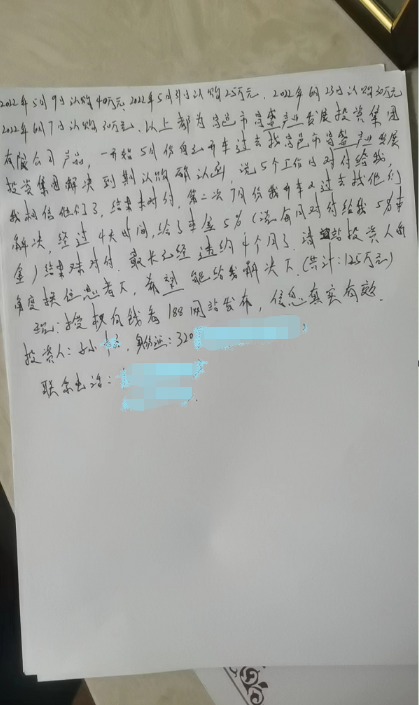 2022年5月9号认购40万元,2022年5月31号认购25万元、2022年6月23号认购30万元
2022年6月7号认购30万元,以上都为 市 产业发展投资集团
有限公司产品,开始5月份自己开车过去找 市 产业发展
投资集团解决到期认购部认的,说5个工作日对付给我,
我相信他们了,结果未对付,第二次7月份我开车又过去找他们
解决,经过4天时间,给了本金5万(说每周对付给我5万本
金)结果未对付,最长已经违约4个月了,请 站投资人的
角度换位思考下,希望能给与解决下.(共计:125万元)
现:授权有线者188网站发布,信息真实有效.
投资人:孙,身份证:320
联系电话: